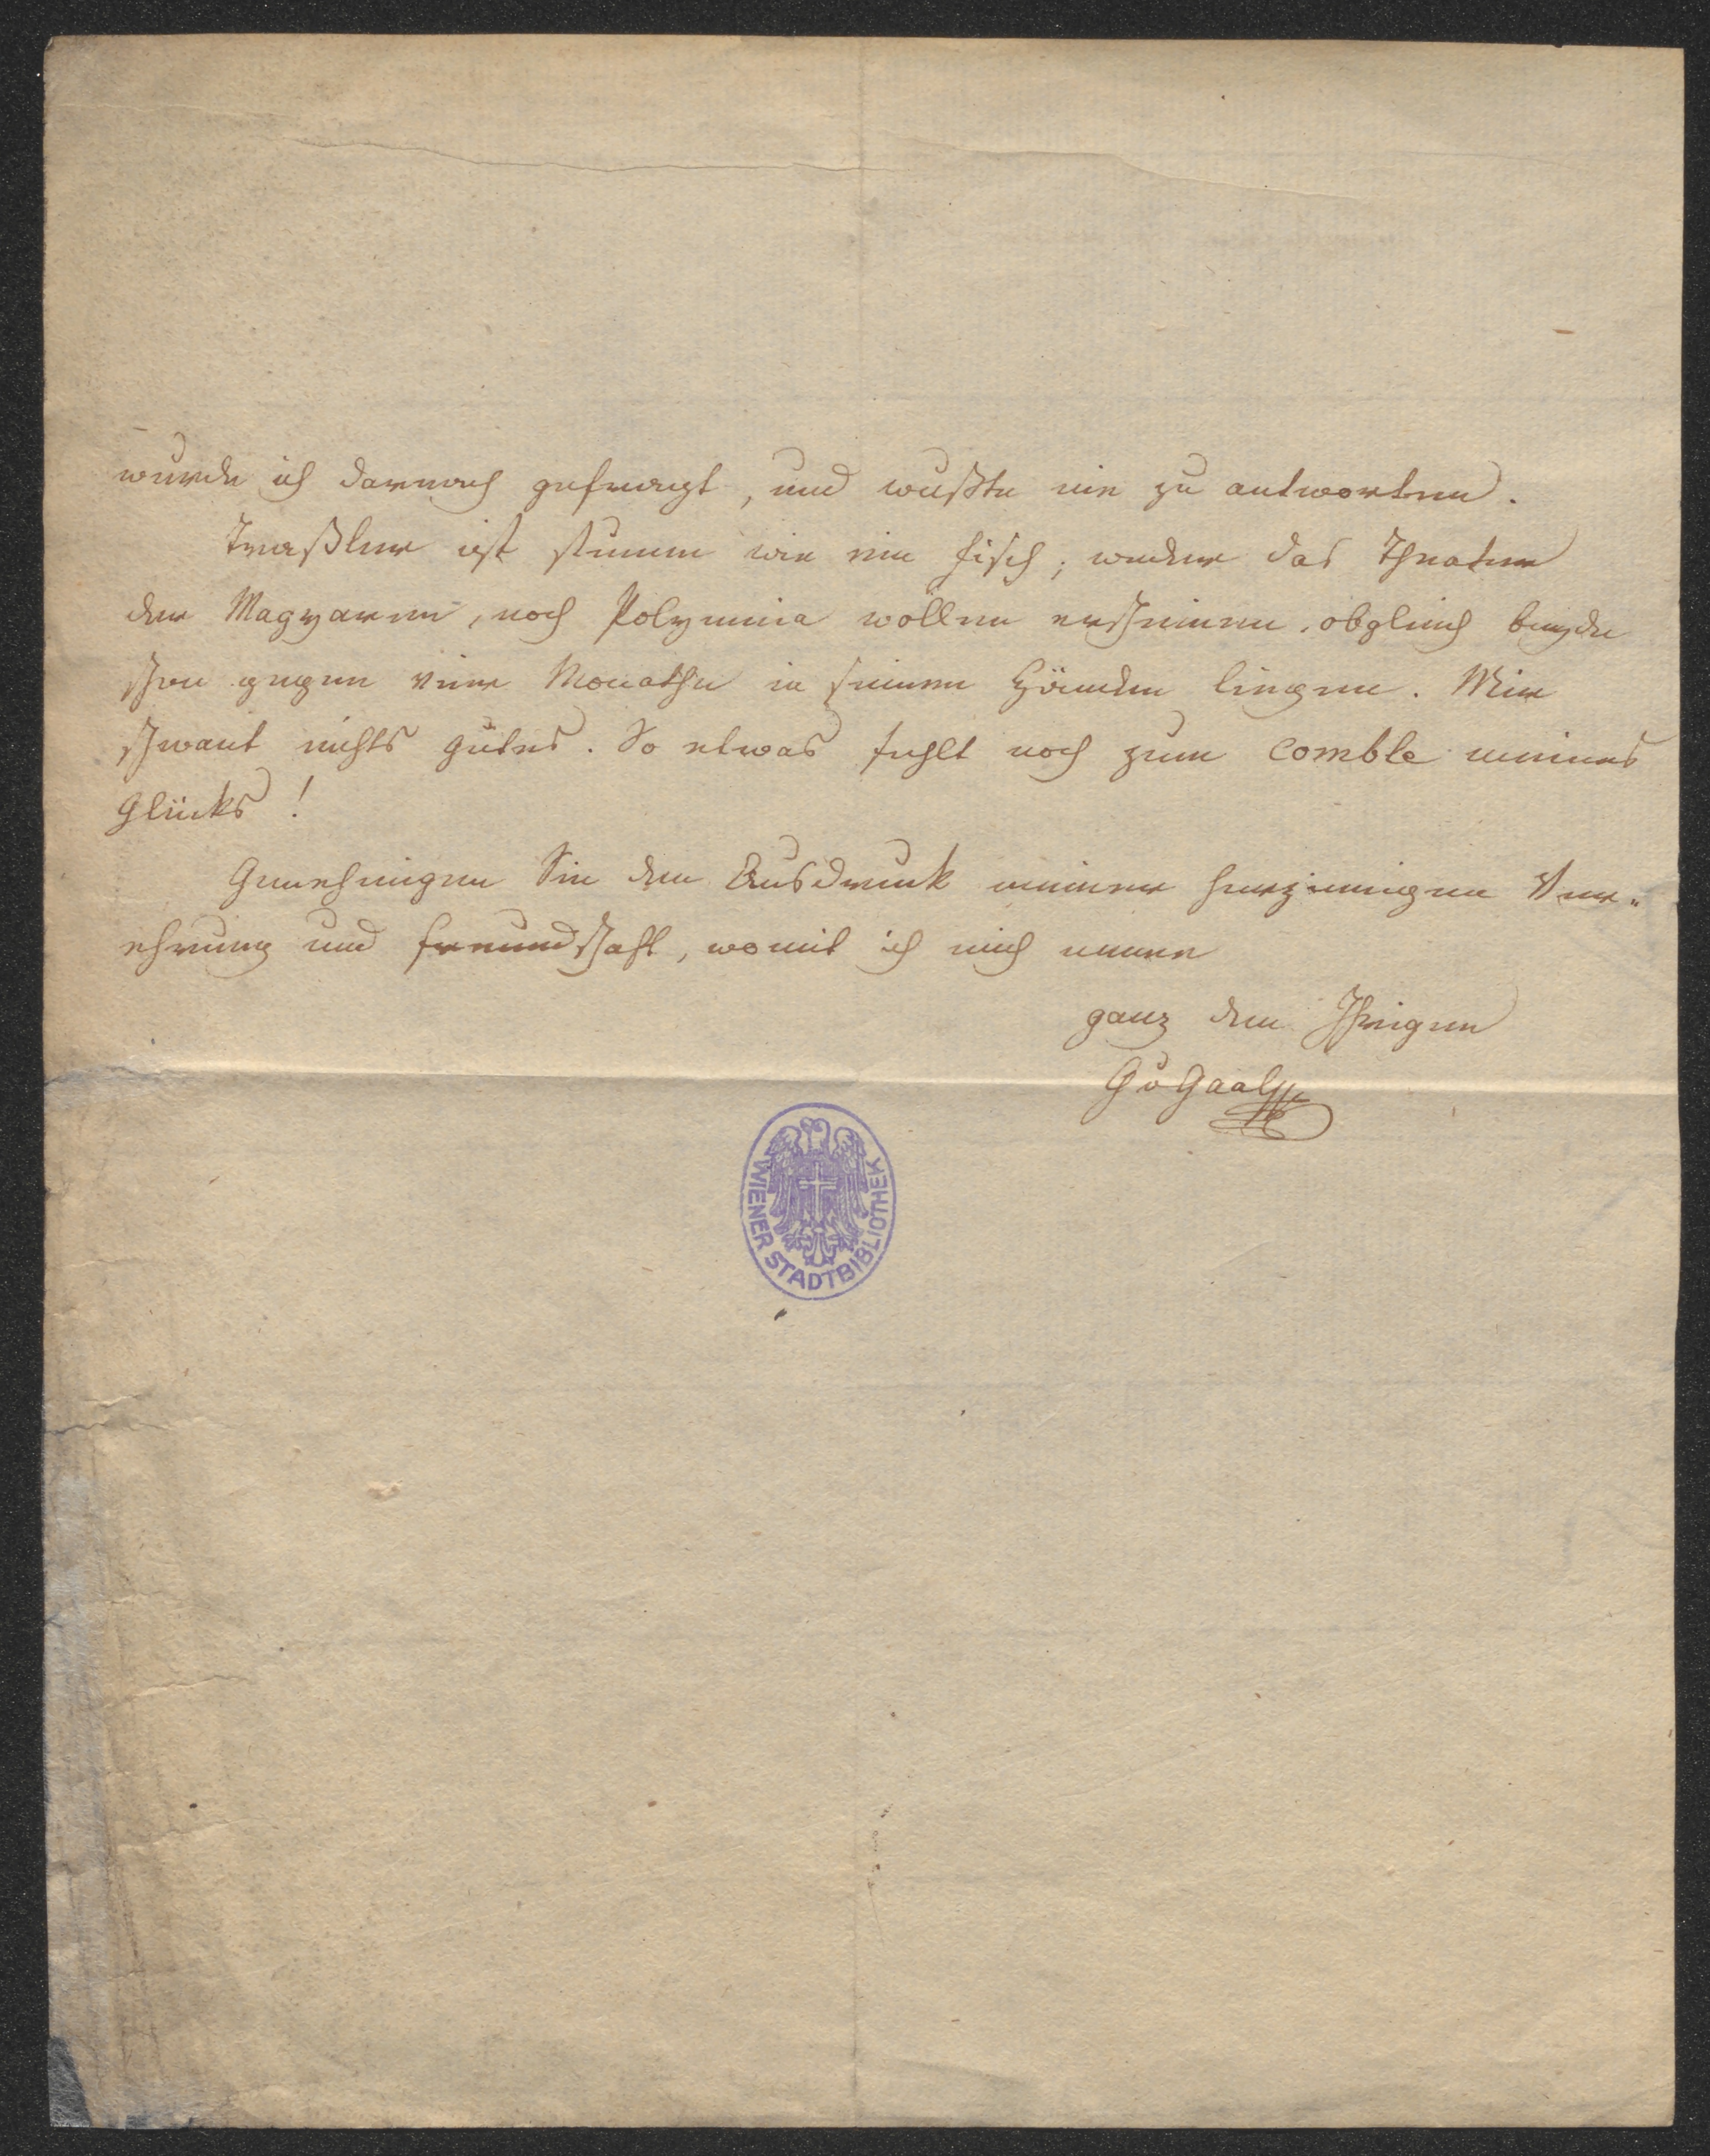 wurde ich darnach gefragt, und wußte nie zu antworten.
Traßler ist stumm wie ein Fisch; weder das Theater
der Magyaren, noch Polymnia wollen erscheinen, obgleich beyde
schon gegen vier Monathe in seinen Händen liegen. Mir
schwant nichts gutes. So etwas fehlt noch zum comble meines
Glücks!
Genehmigen Sie den Ausdruck meiner herzinnigen Ver„
ehrung und Freundschaft, womit ich mich nenne
ganz den Ihrigen
G v Gaal
WIENER STADTBIBLIOTHEK